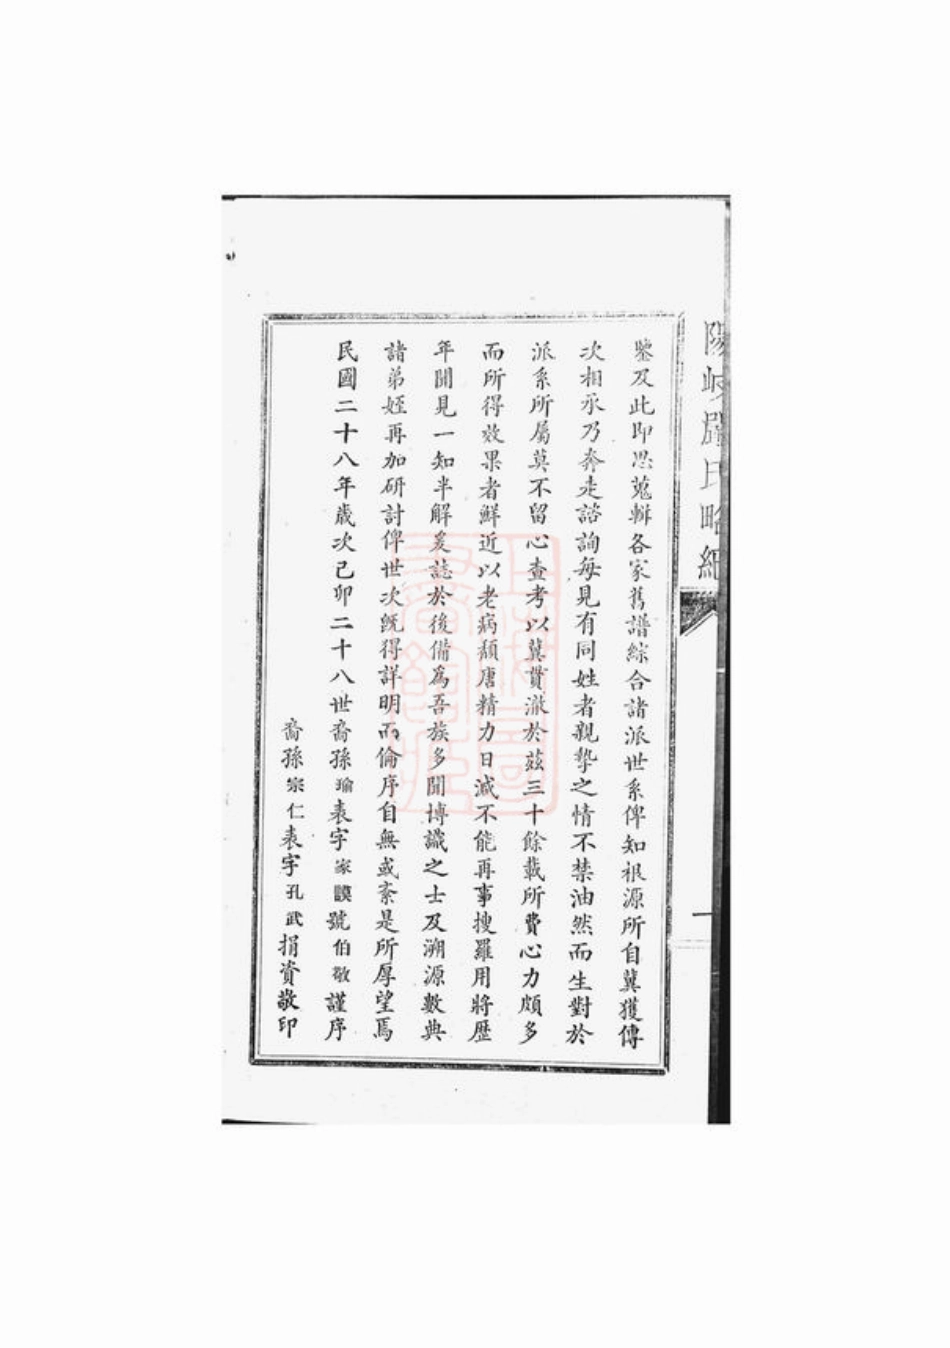 陽岐嚴氏略紀
一
鑒及此即思蒐輯各家舊譜綜合諸派世系俾知根源所自冀獲傳
次相承乃奔走諮詢每見有同姓者親摯之情不禁油然而生對於
派系所屬莫不留心查考以冀貫澈於茲三十餘載所費心力頗多
而所得效果者鮮近以老病頹唐精力日減不能再事搜羅用將歷
年聞見一知半解爰誌於後備爲吾族多聞博識之士及溯源數典
諸弟姪再加研討俾世次既得詳明而倫序自無或紊是所厚望焉
民國二十八年歲次己卯二十八世裔孫瑜表字家謨號伯敬謹序
裔孫宗仁表字孔武捐資敬印